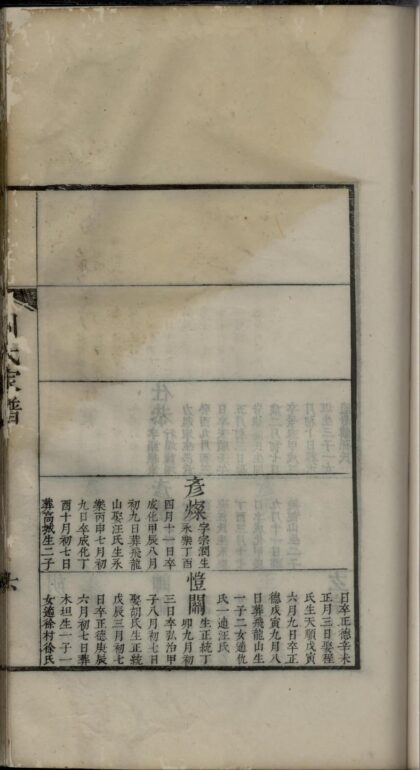 彥燦
字宗潤生
永樂丁酉
四月十一日卒
成化甲辰八月
初九日葬飛龍
山娶汪氏生永
樂丙申七月初
九日卒成化丁
酉十月初七日
葬高城生二子
日卒正德辛未
正月三日娶程
氏生天順戊寅
六月九日卒正
德戊寅九月八
日葬飛龍山生
一子二女適仇
氏一適汪氏
愷關
生正統丁
卯九月初
三日卒弘治甲
子八月初七日
娶胡氏生正統
戊辰三月初七
日卒正德庚辰
六月初七日葬
木坦生一子一
女適徐村徐氏
氏家譜